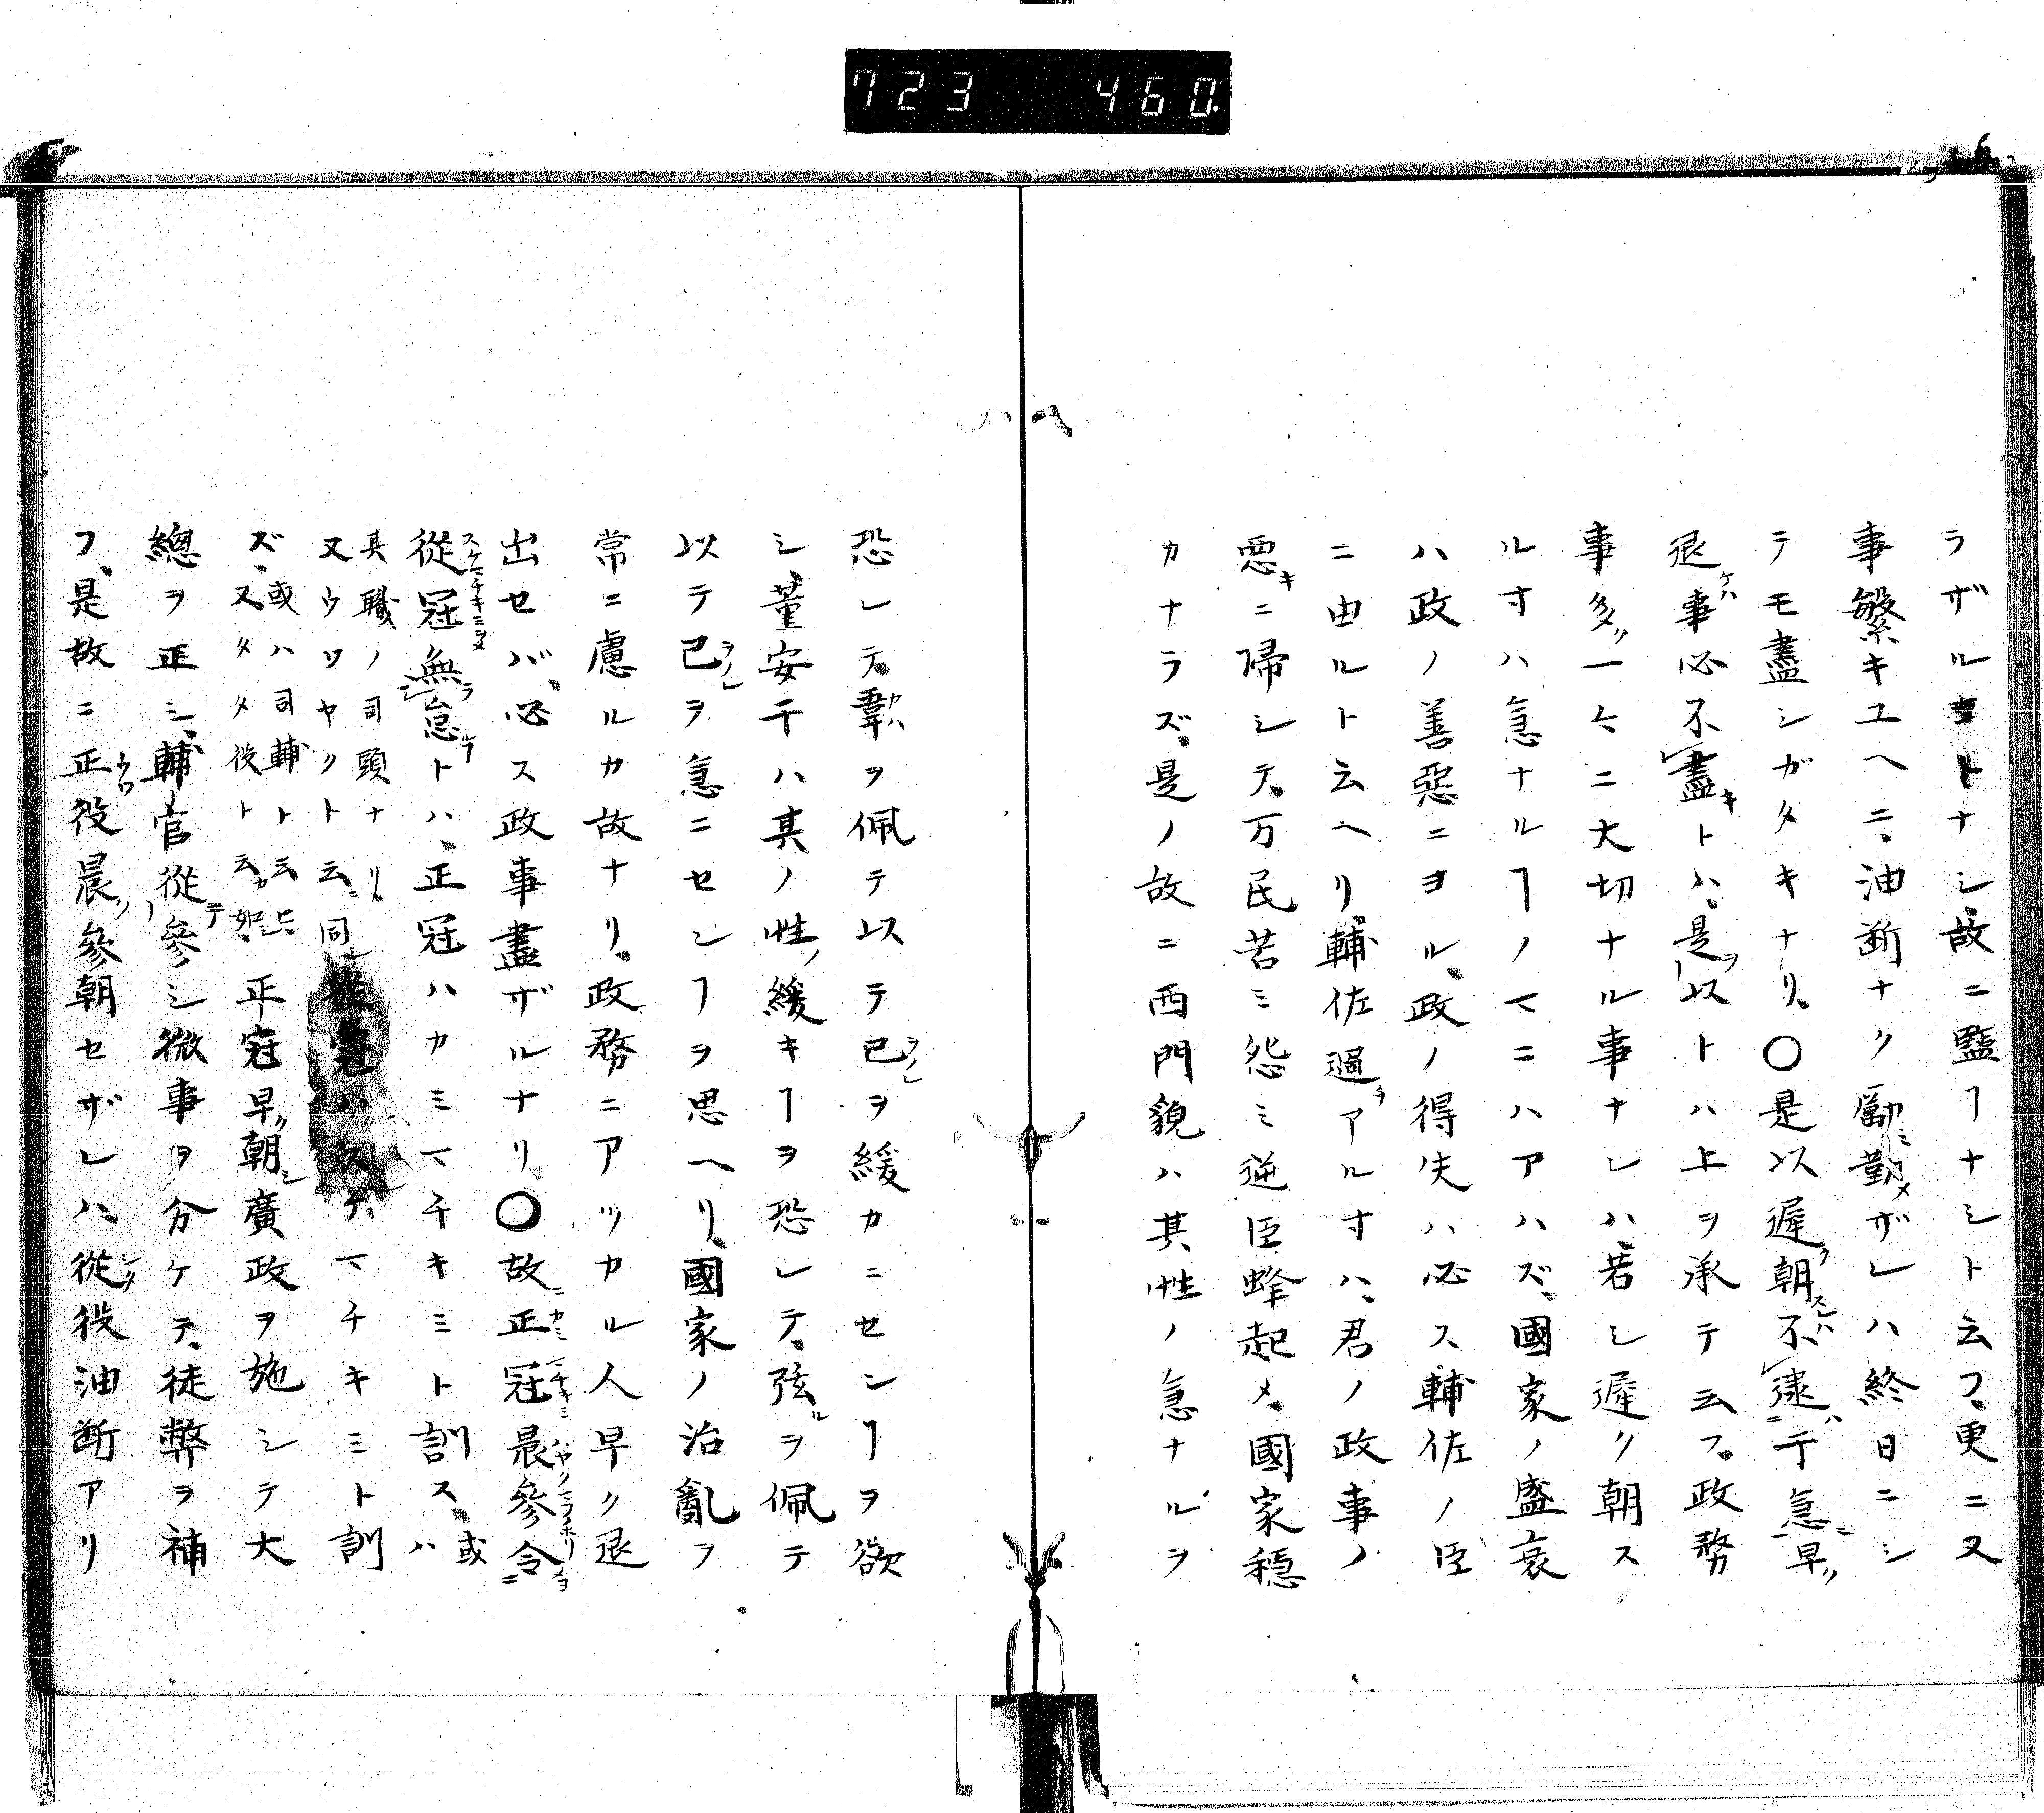 723 460.
ラザルヿトナシ、故ニ監ヿナシト云フ、更ニ又
事繁キユヘニ、油断ナク勵ミ勤メザレハ終日ニシ
テモ盡シガタキナリ、〇是以遅朝不逮于急早
退事必不盡トハ、是以トハ上ヲ承テ云フ、政務
事多一々ニ大切ナル事ナレハ、若シ遅ク朝ス
ル寸ハ急ナルヿノマニハアハズ、國家ノ盛衰
ハ政ノ善惡ニヨル、政ノ得失ハ必ス輔佐ノ臣
ニ由ルト云ヘリ、輔佐過アル寸ハ、君ノ政事ノ
悪キニ帰シテ、万民苦ミ怨ミ逆臣蜂起メ、國家穏
カナラズ、是ノ故ニ西門貌ハ其性ノ急ナルヲ
恐レテ韋ヲ佩テ以テ己ヲ緩カニセンヿヲ欲
シ、董安于ハ其ノ性緩キヿヲ恐レテ、弦ヲ佩テ
以テ己ヲ急ニセンヿヲ思ヘリ、國家ノ治亂ヲ
常ニ慮ルカ故ナリ、政務ニアツカル人早ク退
出セバ、必ス政事盡ザルナリ、〇故正冠晨參令
從冠無怠トハ、正冠ハカミマチキミト訓ス、或ハ
其職ノ司頭ナリ
又ウツヤクト云、同從冠ハスケマチキミト訓
ズ、或ハ司輔ト云ヒ、
又タタタ役ト云カ如シ、正冠早朝廣政ヲ施シテ大
總ヲ正シ、輔官從參シ微事ヲ分ケテ、徒弊ヲ補
フ、是故ニ正役晨參朝セザレハ、從役油断アリ